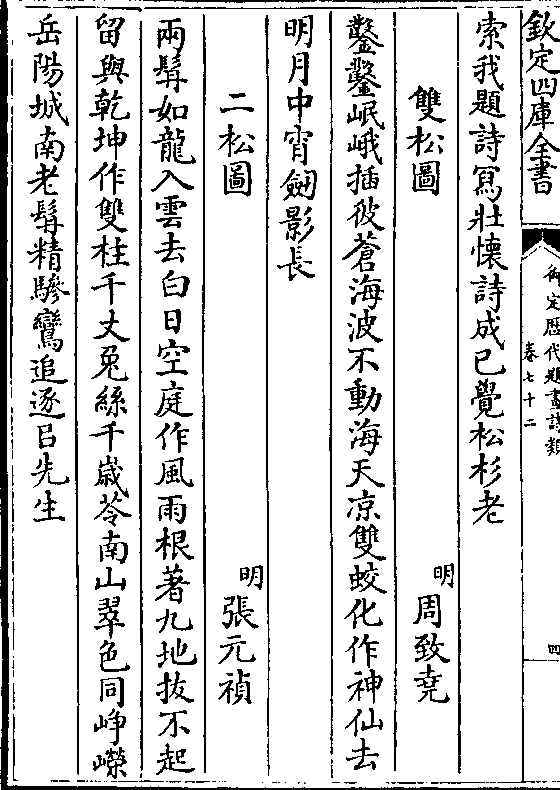 欽定四庫全書
御定歷代題畫詩類
卷七十二
四
索我題詩寫壯懷詩成已覺松杉老
雙松圖
明
周致堯
鑿鑿岷峨插彼蒼海波不動海天凉雙蛟化作神仙去
明月中宵劒影長
二松圖
明
張元禎
兩髯如龍入雲去白日空庭作風雨根著九地拔不起
留與乾坤作雙柱千丈兎絲千歲苓南山翠色同崢嶸
岳陽城南老髯精驂鸞追逐吕先生